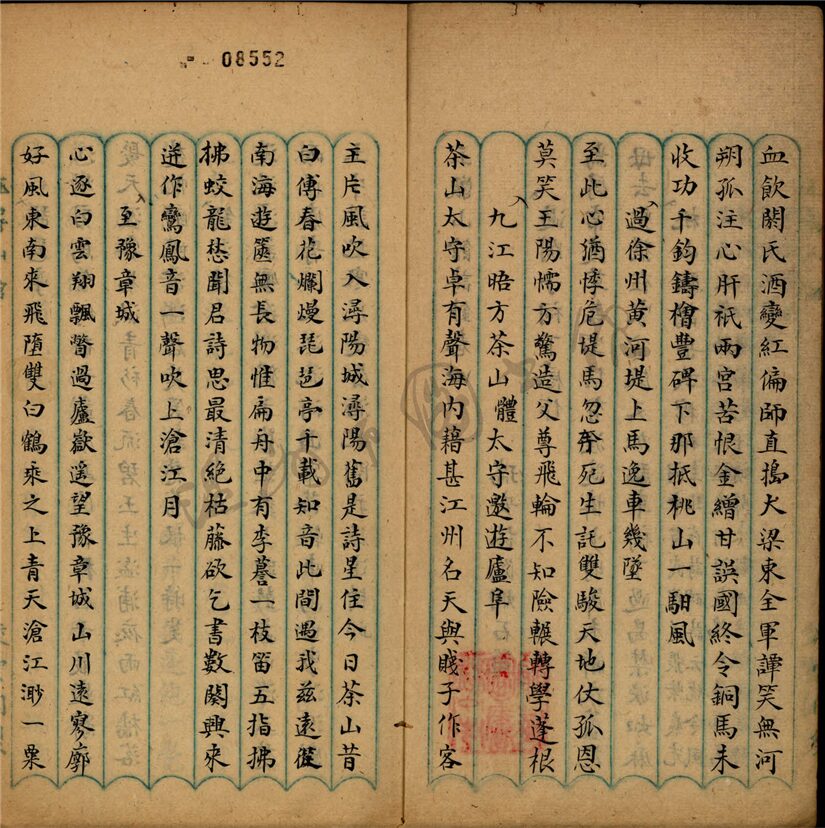 08552
血飲閼氏酒變紅偏師直搗大梁東全軍譁笑無河
朔孤注心肝祇兩宮苦恨金繒甘誤國終令銅馬未
收功千鈞鑄檜豐碑下那抵桃山一駏風
過徐州黃河堤上馬逸車幾墜
至此心猶悸危堤馬忽奔死生託雙駿天地仗孤恩
莫笑王陽懦方驚造父尊飛輪不知險輾轉學蓬根
九江晤方茶山體太守邀遊廬阜
茶山太守卓有聲海內藉甚江州名天與賤子作客
主片風吹入潯陽城潯陽舊是詩星住今日茶山昔
白傅春花爛熳琵琶亭千載知音此間遇我茲遠從
南海遊篋無長物惟扁舟中有李謩一枝笛五指拂
拂蛟龍愁聞君詩思最清絕枯藤欲乞書數闋興來
迸作鸞鳳音一聲吹上滄江月
至豫章城
心逐白雲翔飄瞥過廬嶽遥望豫章城山川遠寥廓
好風東南來飛墮雙白鶴乘之上青天滄江渺一粟